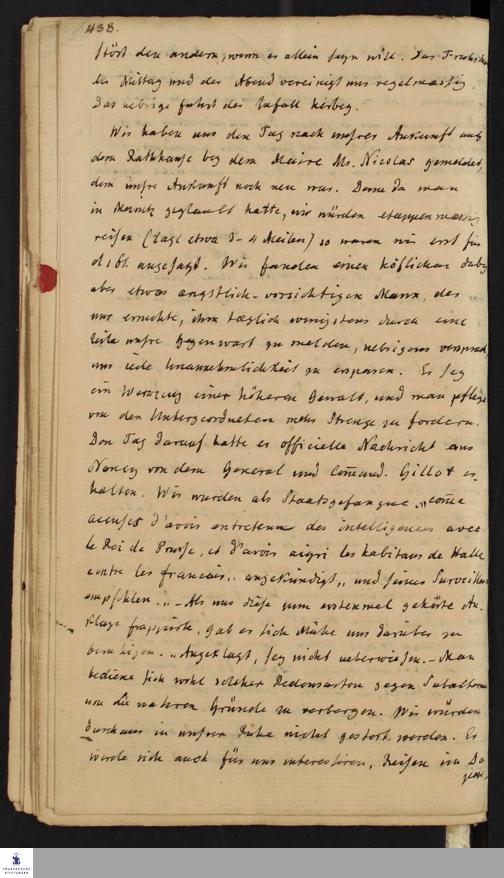 438.
stört den andern, wenn er allein seyn will. Das Frühstück
der Mittag und der Abend vereinigt uns regelmaessig.
das uebrige fuhrt der Zufall herbey.
Wir haben uns den Tag nach unsrer Ankunft auf
dem Rathhause bey dem Maire Mr. Nicolas gemeldet,
dem unsre Ankunft noch neu war. Denn da man
in Mainz geglaubt hatte, wir würden etappenmaessig
reisen (tägl etwa 3-4 Meilen) so waren wir erst für
d 16t. angesagt. Wir fanden einen höflichen dabey
aber etwas ängstlich-vorsichtigen Mann, der
uns ersuchte, ihm täglich wenigstens durch eine
Zeile unsre Gegenwart zu melden, uebrigens versprach
uns jede Unannehmlichkeit zu ersparen. Er sey
ein Werkzeug einer höheren Gewalt, und man pflege
von den Untergeordneten mehr Strenge zu fordern.
Den Tag darauf hatte er officielle Nachricht aus
Nancy von dem General und Com̅and. Gillot er-
halten. Wir wurden als Staatsgefangne „com̅e
accusés d'avoir entretenu des intelligences avec
le Roi de Prusse, et d'avoir aigri les habitans de Halle
contre les francais„ angekündigt„ und seiner Surveillance
empfohlen. „ - Als uns diese zum erstenmal gehörte An-
klage frappirte, gab er sich Mühe uns darüber zu
beruhigen. „Angeklagt, sey nicht ueberwiesen. - Man
bediene sich wohl solcher Redensarten gegen Subalterne
um die wahren Gründe zu verbergen. Wir würden
durchaus in unsrer Ruhe nicht gestört werden. Er
werde sich auch für uns interessiren, Reisen im De
FRANCKESCHE
STIFTUNGEN